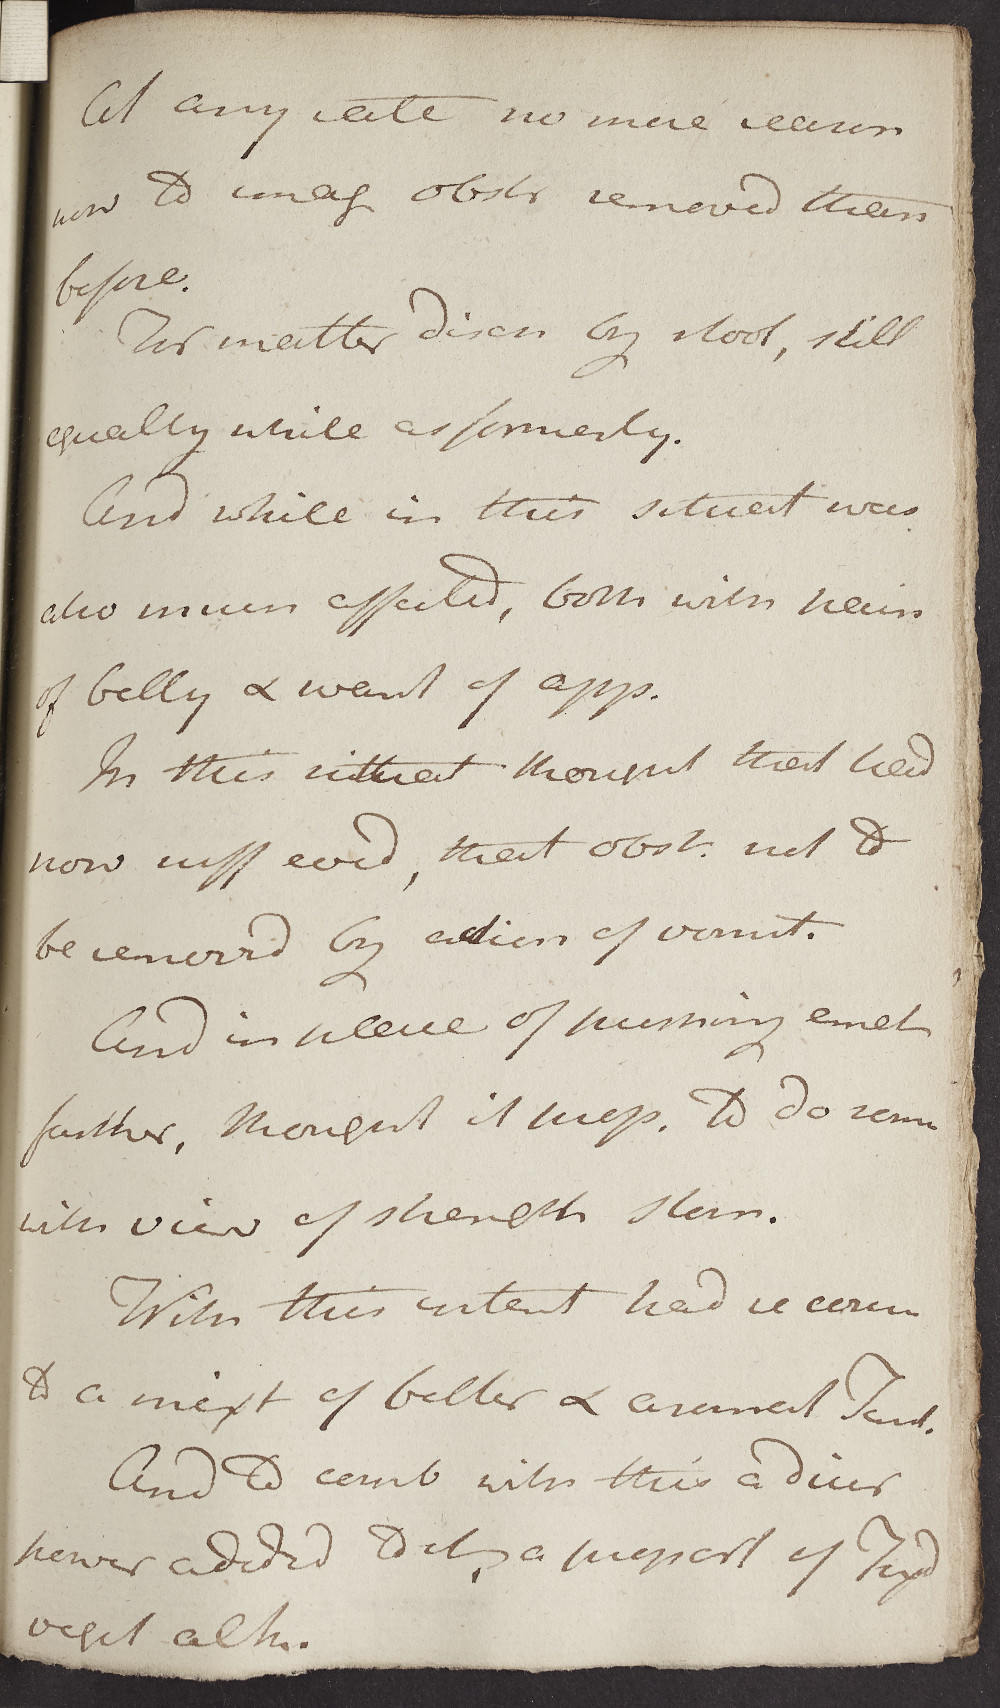 At any rate no more reason
now to imag obstr removed than
before.
For matter disch by stool, still
equally white as formerly.
And while in this situat was
also much affected, both with pain
of belly & want of app.
In this situat thought that had
now suff evid, that obst. not to
be remov'd by action of vomit.
And in place of pushing emet
further, thought it prop. to do som
with view of strength stom.
With this intent had recours
to a mixt of bitter & aromat Tinct.
And to comb with this a diur
power added to it, a proport of
veget alk.